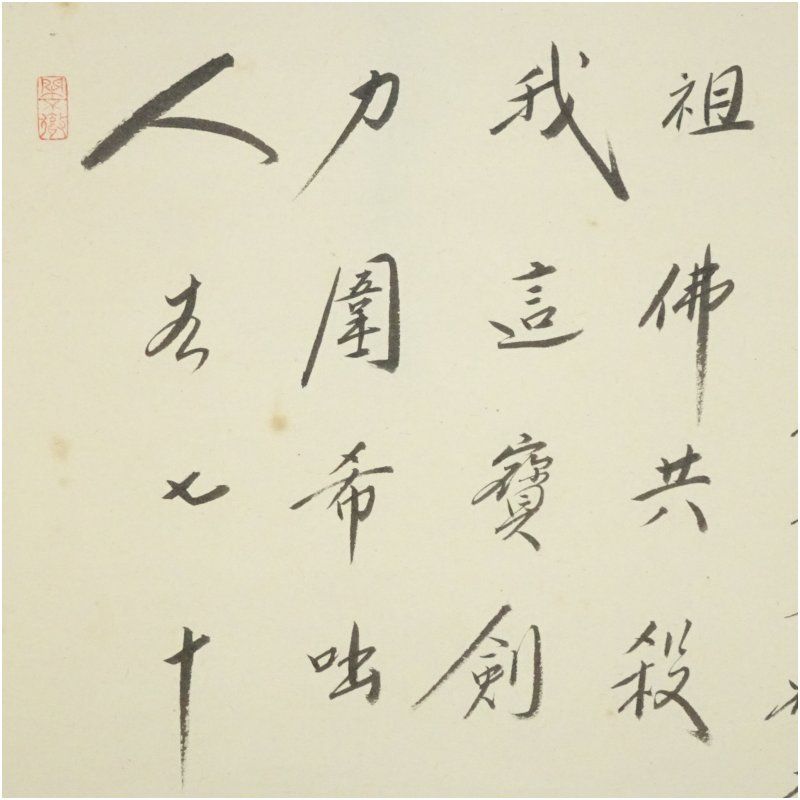 人七十
力圍希咄
我這寶剣
祖佛共殺